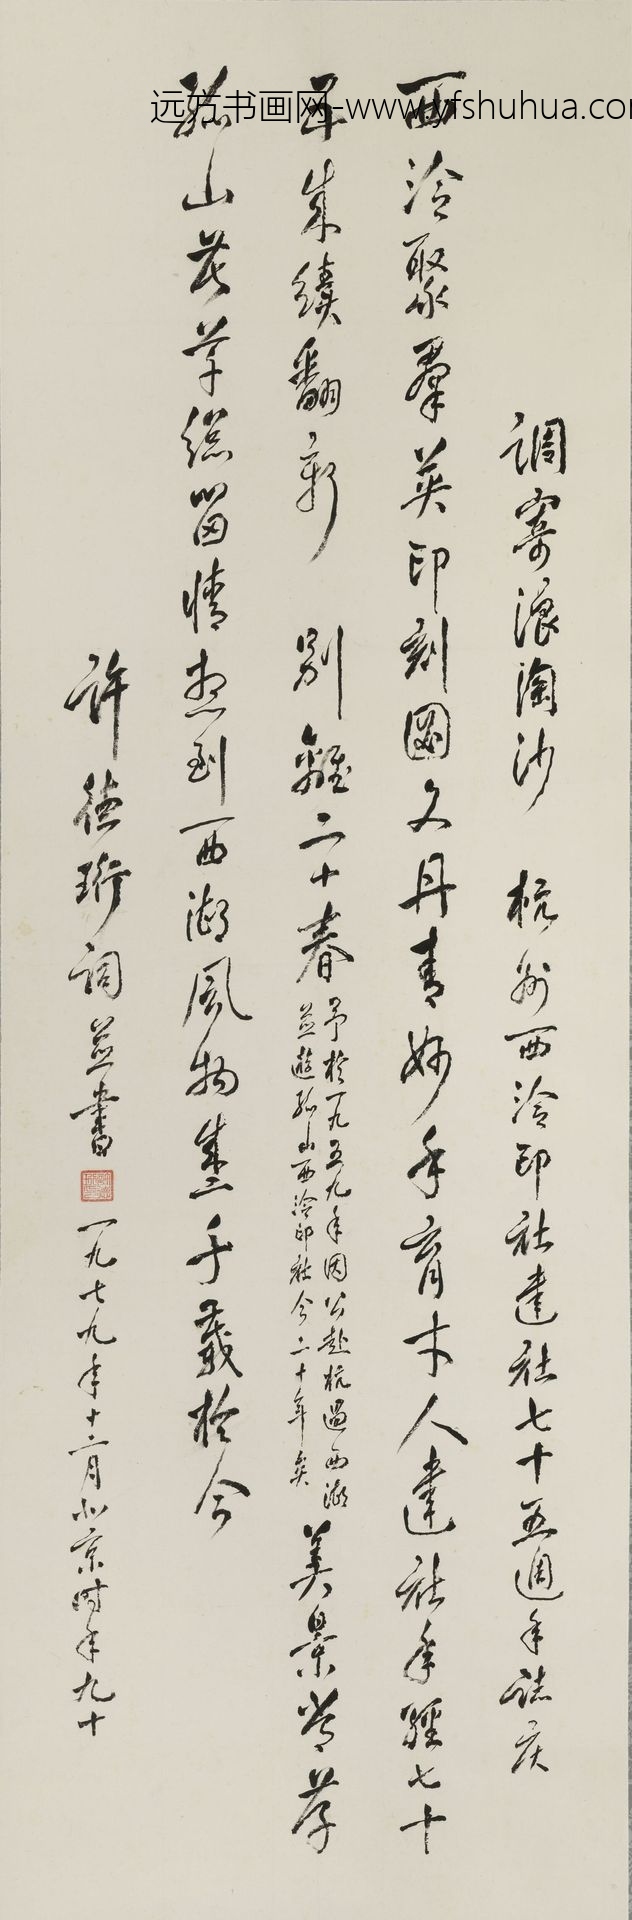 远方书画网-www.yfshuhua.com
调寄浪淘沙 杭州西泠印社建社七十五週年誌庆
西泠聚羣英印刻图文丹青妙手育才人建社年經七十
五年来續翻新 别離二十春
予於一九五九年因公赴杭過西湖
並遊孤山西泠印社今二十年矣
美景常存
孤山花草總留情想到西湖風物盛千載於今
許德珩詞並書
一九七九年十二月北京时年九十